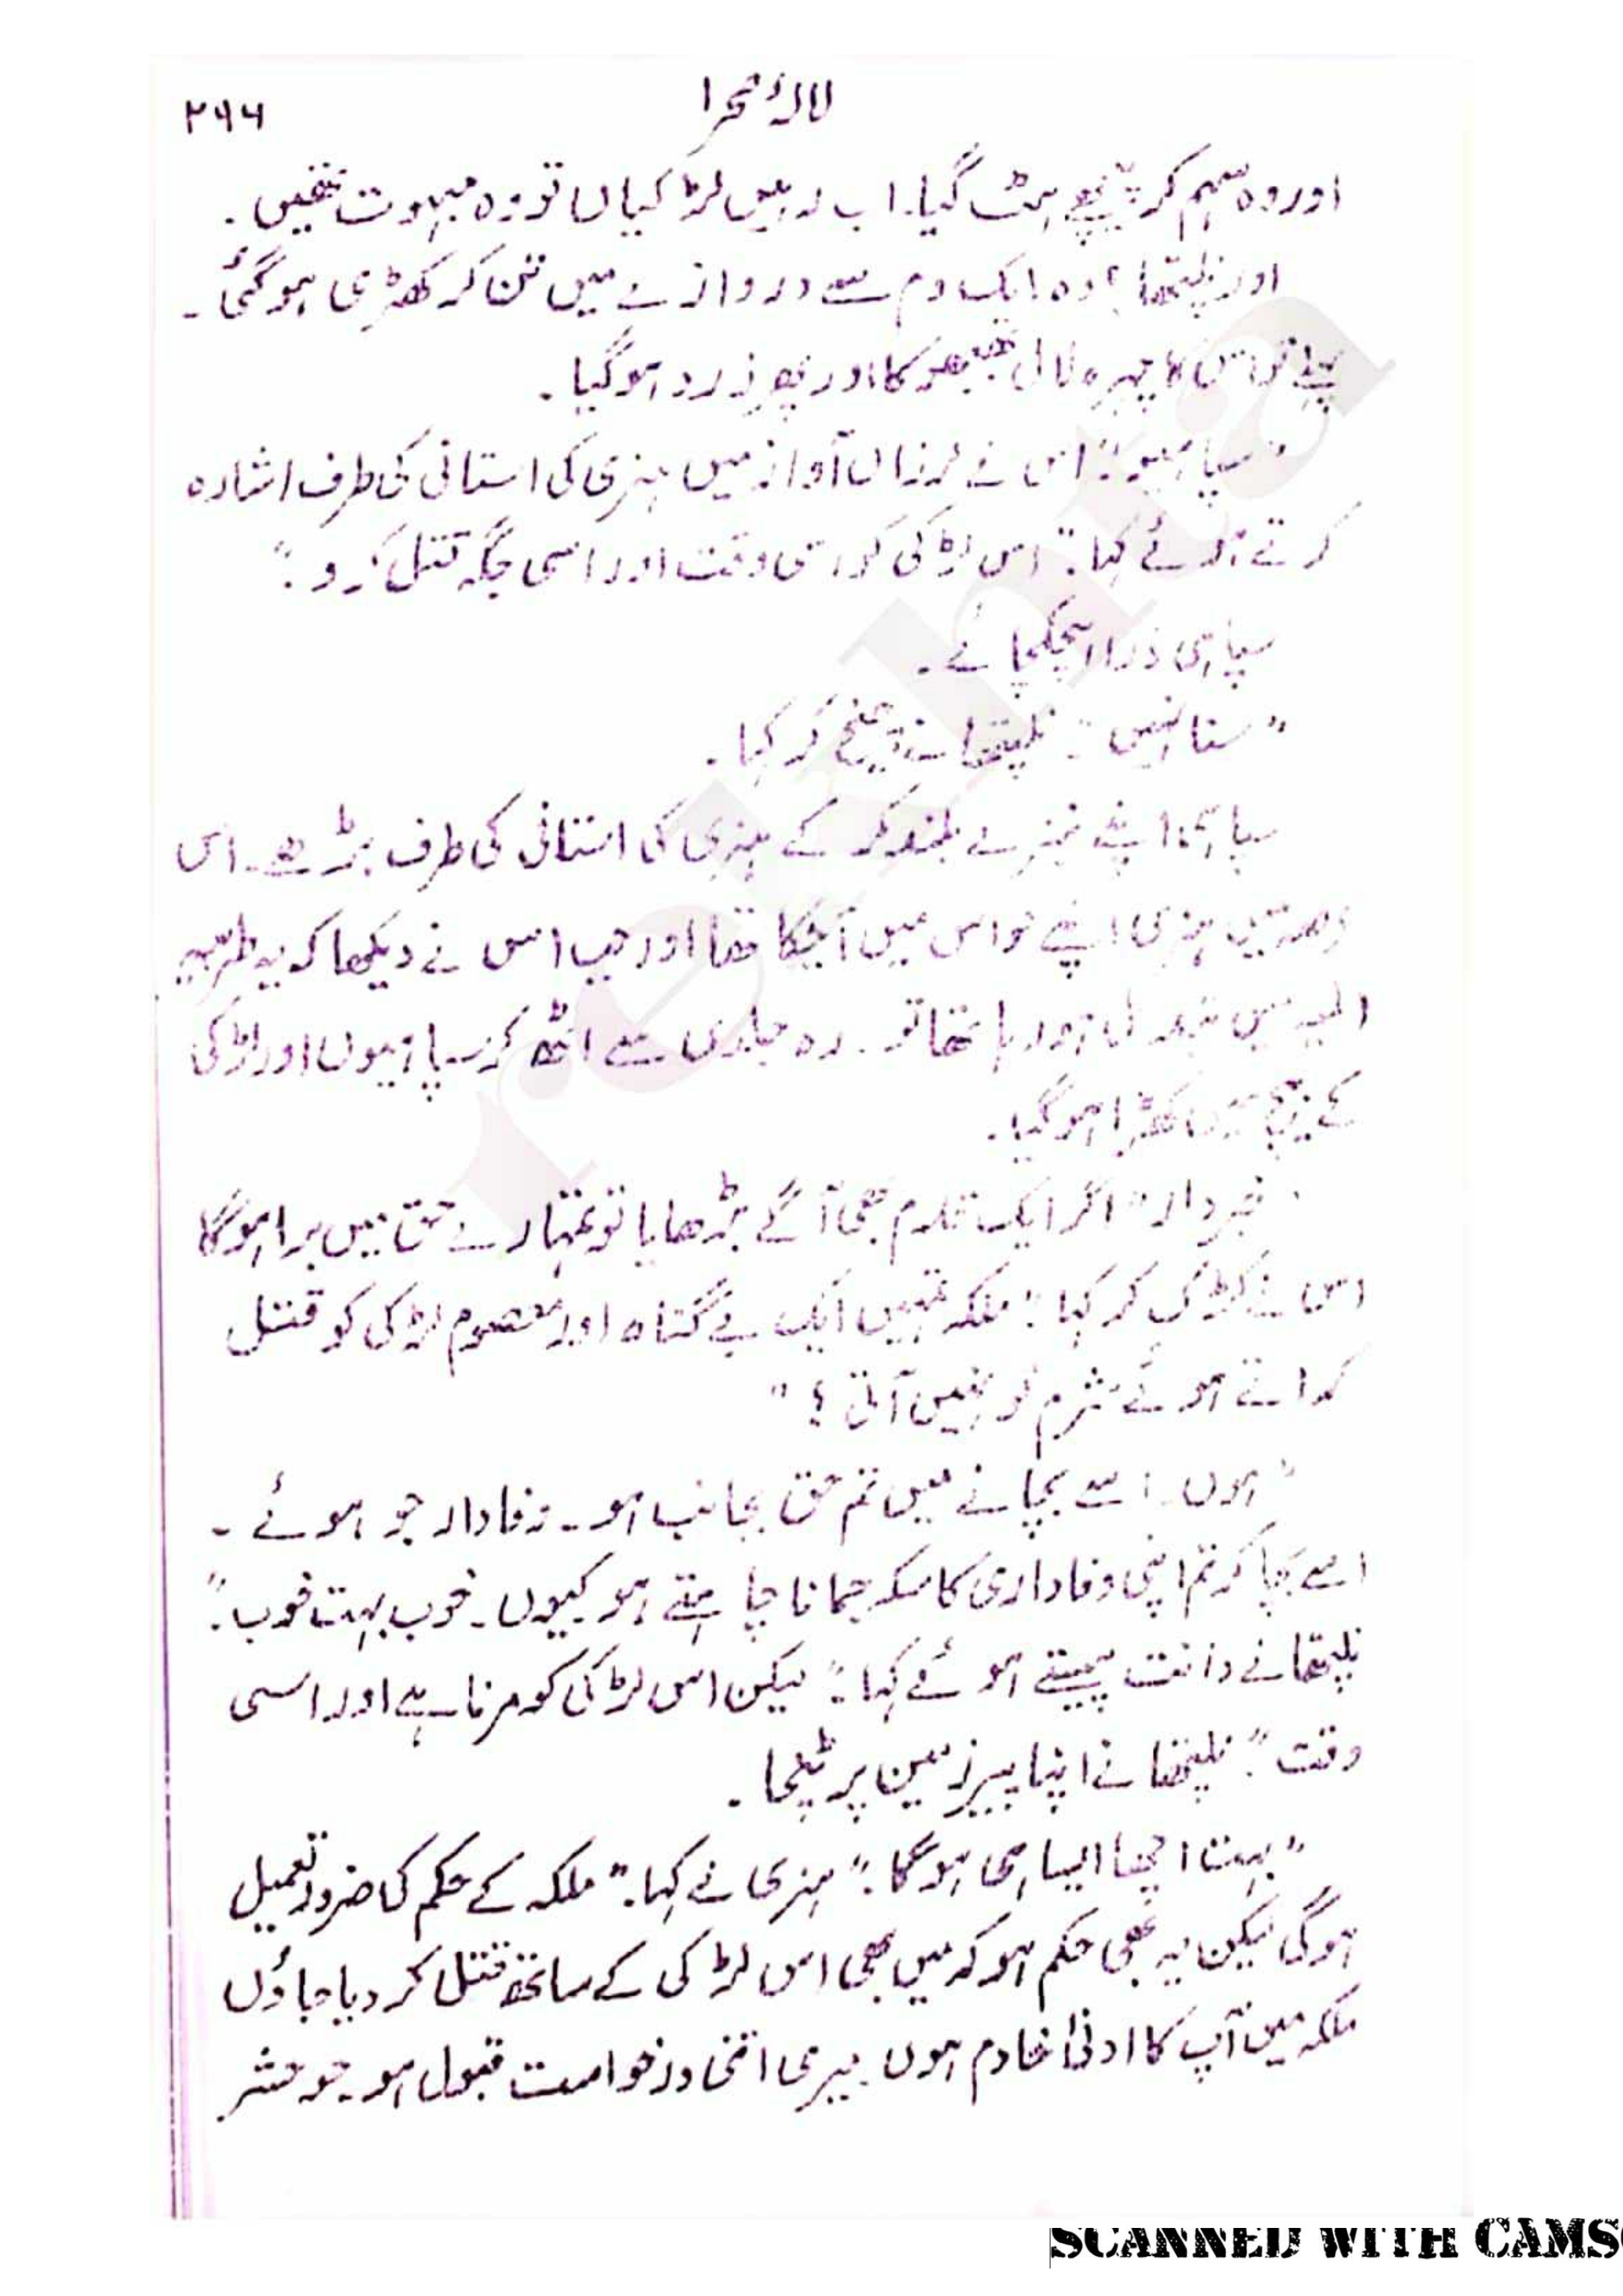 لالۂ صحرا
۲۹۶
اور وہ سہم کر پیچھے ہٹ گیا۔ اب رہیں لڑکیاں تو وہ مبہوت تھیں۔
اور نلیتھا؟ وہ ایک دم سے دروازے میں تن کر کھڑی ہو گئی۔
پہلے تو اس کا چہرہ لال بھبھوکا اور پھر زرد ہو گیا۔
"سپاہیو!" اس نے لرزاں آواز میں ہنری کی استانی کی طرف اشارہ
کرتے ہوئے کہا۔ "اس لڑکی کو اسی وقت اور اسی جگہ قتل کر دو۔"
سپاہی ذرا ہچکچائے۔
"سنا نہیں"۔ نلیتھا نے چیخ کر کہا۔
سپاہی اپنے نیزے بلند کر کے ہنری کی استانی کی طرف بڑھے۔ اس
ہنری اپنے حواس میں آ چکا تھا اور جب اس نے دیکھا کہ یہ طربیہ
المیہ میں تبدیل ہو رہا تھا تو۔ وہ جلدی سے اٹھ کر سپاہیوں اور لڑکی
کے بیچ میں کھڑا ہو گیا۔
"خبردار" اگر ایک قدم بھی آگے بڑھایا تو تمہارے حق میں برا ہوگا
اس نے کڑک کر کہا: "ملکہ تمہیں ایک بے گناہ اور معصوم لڑکی کو قتل
کراتے ہوئے شرم تو نہیں آتی؟"
"ہوں۔ اسے بچانے میں تم حق بجانب ہو۔ وفادار جو ہوئے۔
اسے بچا کر تم اپنی وفاداری کا سکہ جمانا چاہتے ہو کیوں۔ خوب بہت خوب۔"
نلیتھا نے دانت پیستے ہوئے کہا۔ "لیکن اس لڑکی کو مرنا ہے اور اسی
وقت"۔ نلیتھا نے اپنا پیر زمین پر پٹخا۔
"بہت اچھا ایسا ہی ہو گا۔" ہنری نے کہا۔ "ملکہ کے حکم کی ضرور تعمیل
ہوگی لیکن یہ بھی حکم ہو کہ میں بھی اس لڑکی کے ساتھ قتل کر دیا جاؤں
ملکہ میں آپ کا ادنیٰ خادم ہوں۔ میری اتنی درخواست قبول ہو۔ جو حشر
SCANNED WITH CAMS